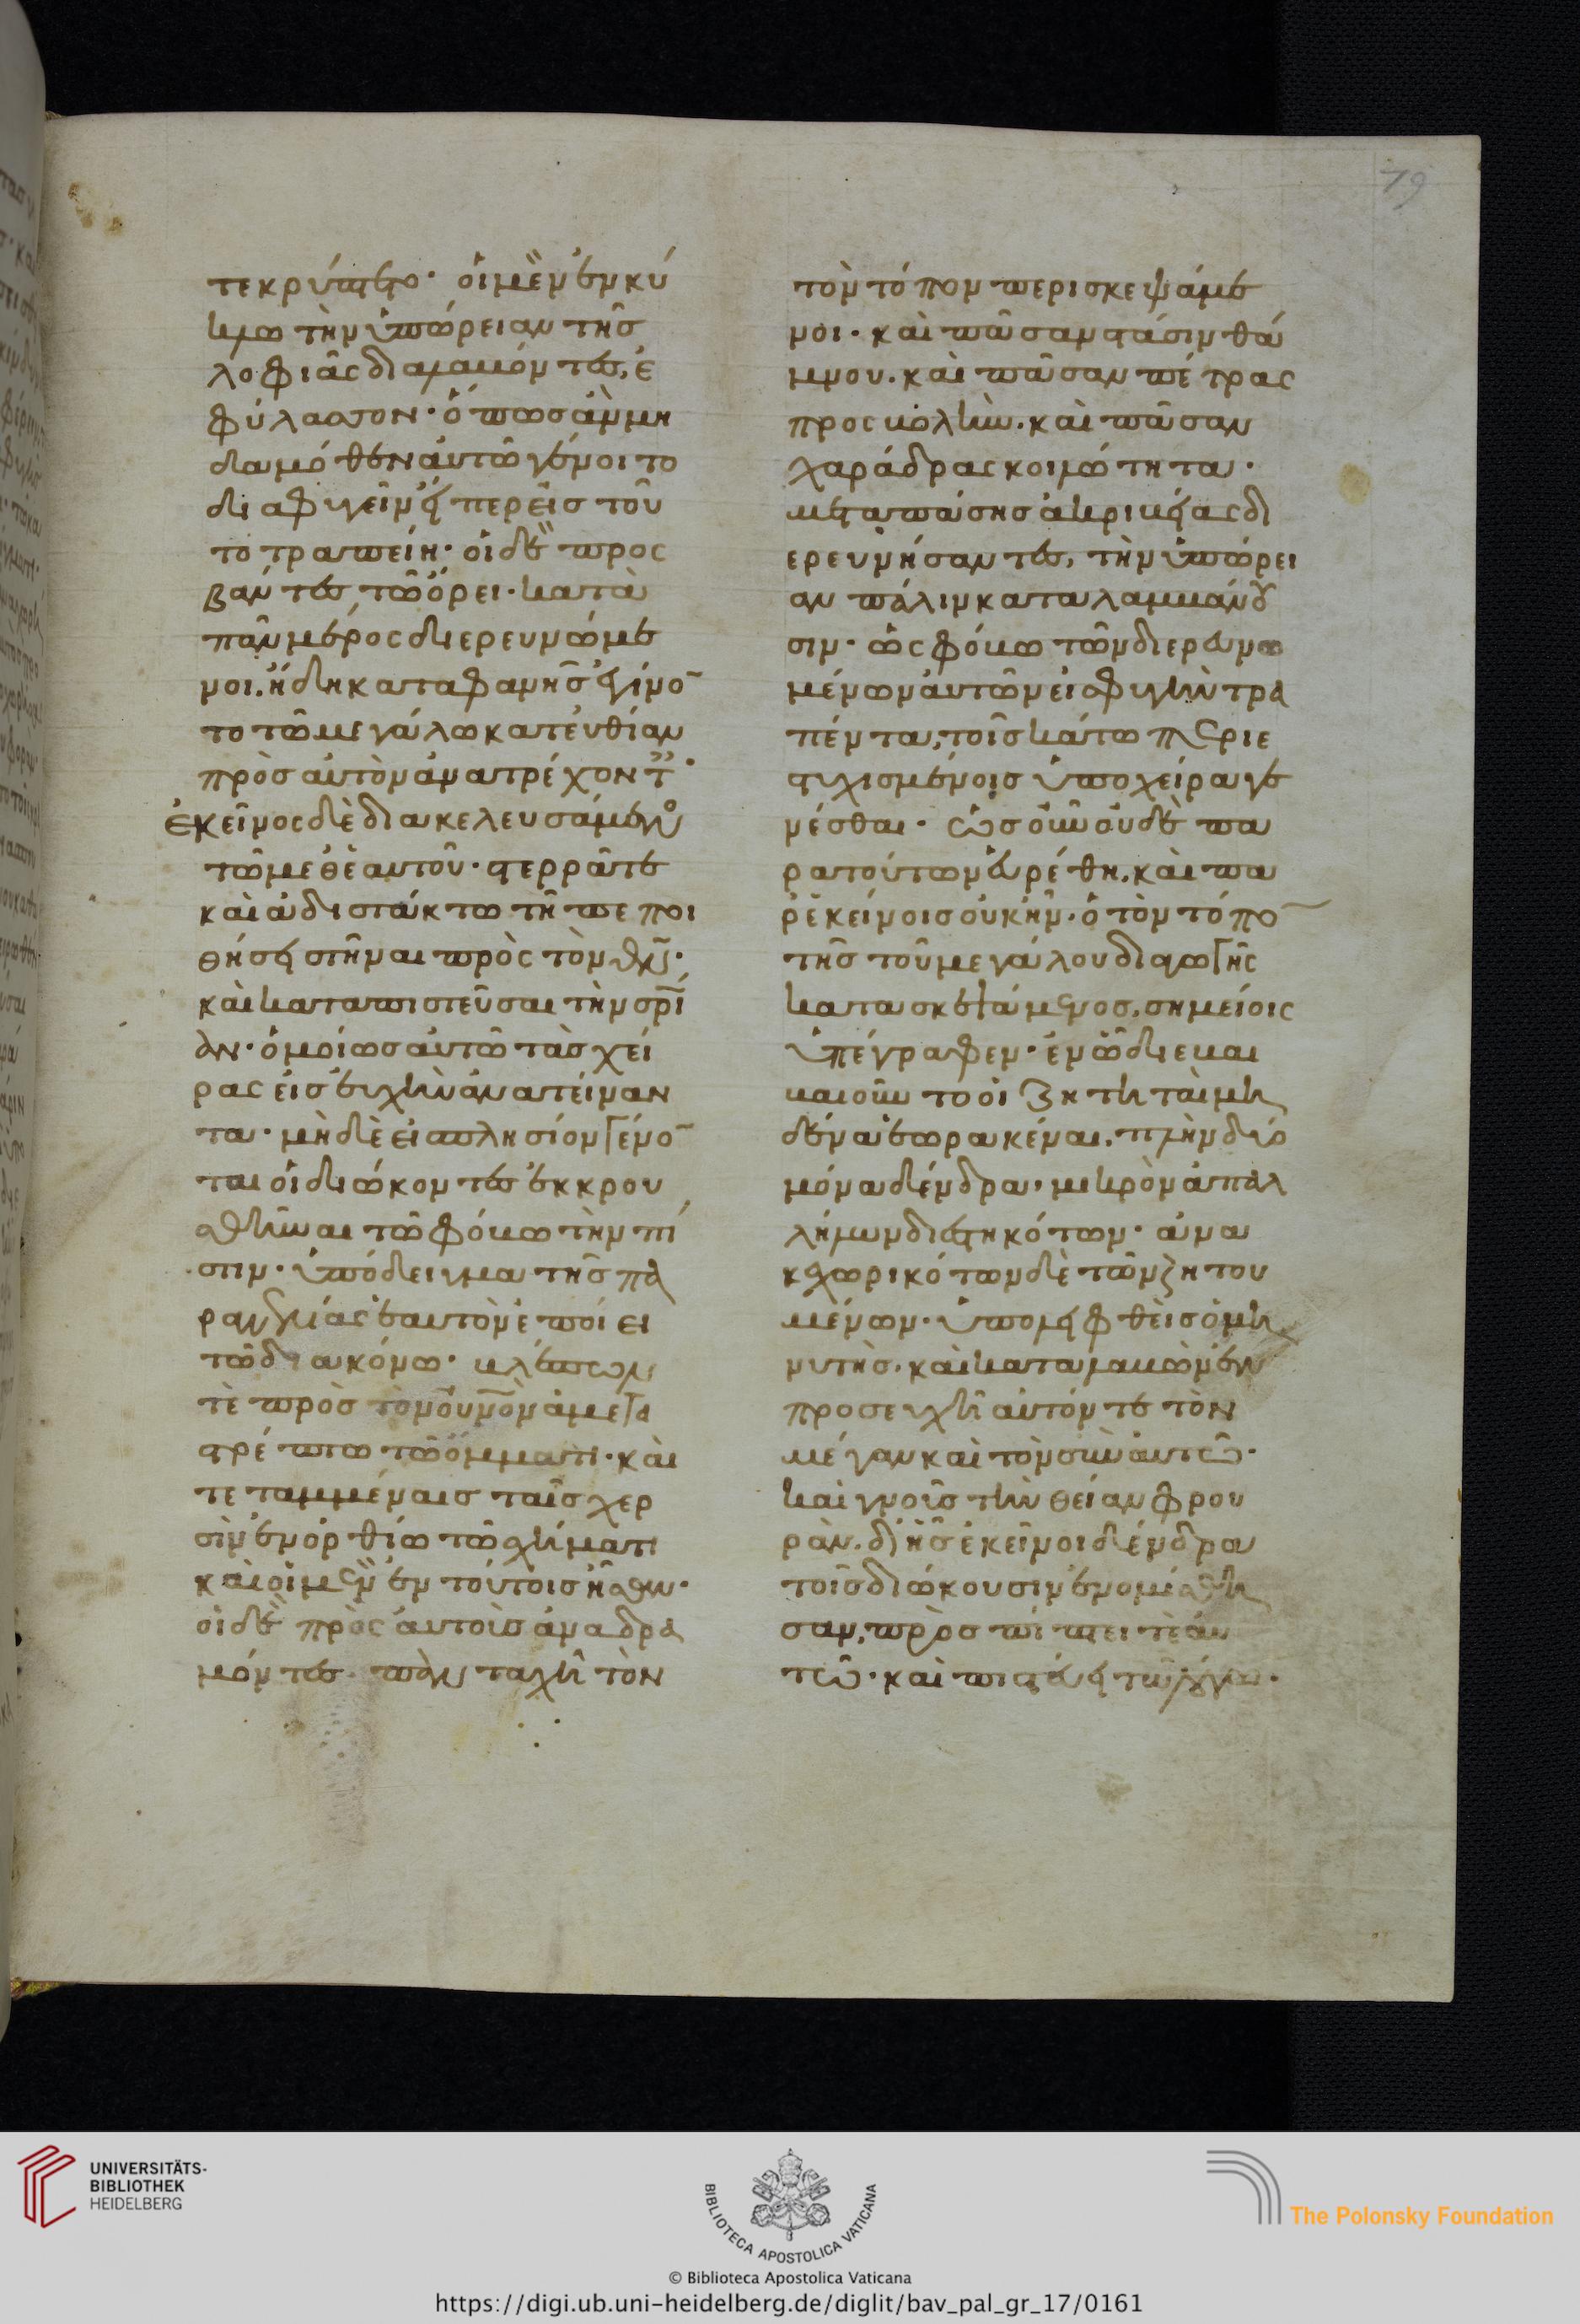 τεκρύπτετο· οἱ μὲν ἐν κύ
κλω τὴν ὑπώρειαν τῆς
λοφιᾶς διαλαβόντες, ἐ
φύλασσον· ὅπως ἂν μη
δαμόθεν αὐτῶ γένοιτο
διαφυγεῖν εἴπερ εἰς τοῦ
το τραπείη· οἱ δὲ προς
βάντες, τῶ ὄρει· κατὰ
πᾶν μέρος διερευνώμε
νοι. ἤδη καταφανὴς ἐγίνο
το τῶ μεγάλω κατευθίαν
πρὸς αὐτὸν ἀνατρέχοντ
ἐκεῖνος δὲ διακελευσάμενος
τῶ μεθ ἑαυτοῦ· στερρᾶ τε
καὶ ἀδιστάκτω τῆ πεποι
θήσει στῆναι πρὸς τὸν θν·
καὶ καταπιστεῦσαι τὴν σρι
αν· ὁμοίως αὐτῶ τὰς χεῖ
ρας εἰς εὐχὴν ἀνατείναν
τα· μὴ δὲ εἰ πλησίον γένο
ται οἱ διώκοντες ἐκκρου
σθῆναι τῶ φόβω τὴν πί
στιν· ὑπόδειγμα τῆς πα
ραγγελίας ἑαυτὸν ἐποίει
τῶ διακόνω· βλέπων
τὲ πρὸς τὸν οὐνὸν ἀμετα
στρέπτω τῶ ὄμματι· καὶ
τεταμμέναις ταῖς χερ
σὶν ἐν ὀρθίω τῶ σχήματι
καὶ οἱ μὲν ἐν τούτοις ἦσαν·
οἱ δὲ πρὸς αὐτοὺς ἀναδρα
μόντες πάνταχῆ τὸν
79
τὸν τόπον περισκεψάμε
νοι· καὶ πᾶσαν στάσιν θά
μνου. καὶ πᾶσαν πέτρας
προσβολὴν. καὶ πᾶσαν
χαράδρας κοιλότητα·
μετα πάσης ἀκριβείας δι
ερευνήσαντες, τὴν ὑπώρει
αν πάλιν καταλαμβάνου
σιν· ὡς φόβω τῶν διερευνω
μένων αὐτῶν εἰς φυγὴν τρα
πέντα, τοῖς κάτω περιε
στιχισμένοις ὑποχείρα γε
νέσθαι· ὡς οὖν οὐδὲ πα
ρα τούτων εὑρέθη, καὶ πα
ρ ἐκείνοις οὐκ ἦν. ὁ τὸν τόπο
τῆς τοῦ μεγάλου διαγωγῆς
κατασκεψάμενος, σημείοις
ὑπέγραφεν· ἐν ὧ διεβαι
βαιοῦντο οἱ ζητηταὶ μη
δένα ἑωρακέναι, πλὴν δύο
μόνα δένδρα· μικρὸν ἀπαλ
λήλων διεστηκότων· ἀνα
κεχωρικότων δὲ τῶν ζητου
μένων· ὑπολειφθεὶς ὁ μη
νυτὴς, καὶ καταλαβὼν ἐν
προσευχῆ αὐτόν τε τὸν
μέγαν καὶ τὸν σὺν αὐτῶ·
καὶ γνοὺς τὴν θείαν φρου
ρὰν. δι ἧς ἐκεῖνοι δένδρα
τοῖς διώκουσιν ἐνομίσθη
σαν, προσπίπτει τὲ αὐ
τῶ· καὶ πιστεύει τῶ λόγω·
UNIVERSITÄTS-
BIBLIOTHEK
HEIDELBERG
BIBLIOTECA APOSTOLICA VATICANA
The Polonsky Foundation
© Biblioteca Apostolica Vaticana
https://digi.ub.uni-heidelberg.de/diglit/bav_pal_gr_17/0161